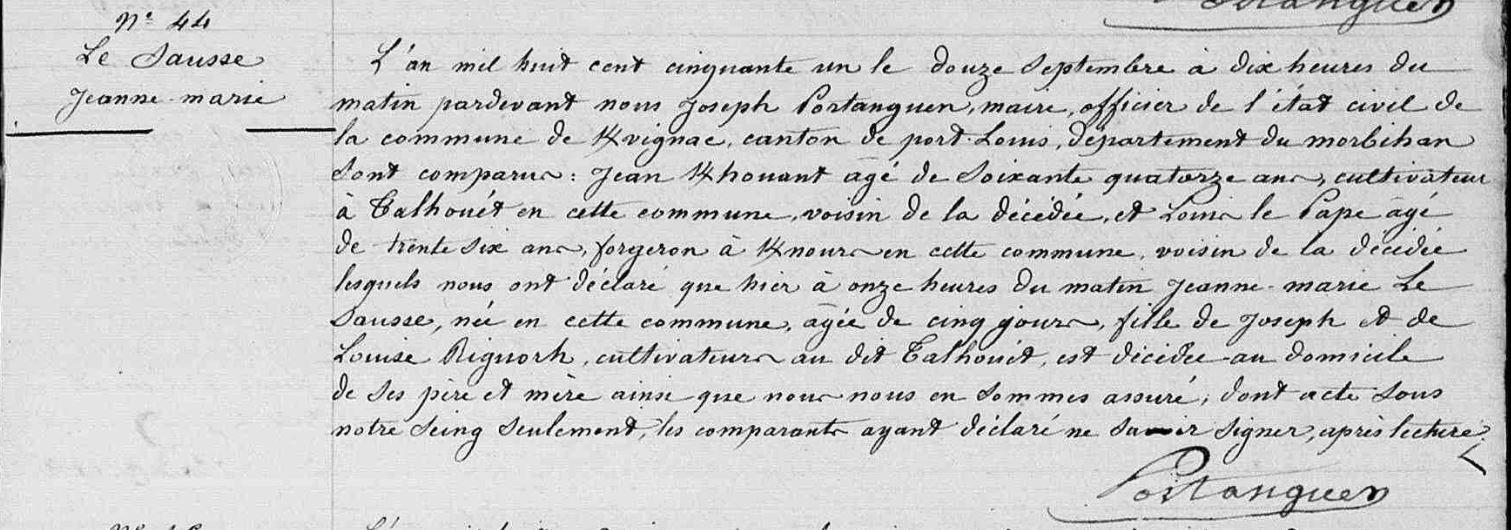 Portanguen
Nº 44
Le Sausse
Jeanne-marie
L'an mil huit cent cinquante un le douze Septembre à dix heures du
matin pardevant nous Joseph Portanguen, maire, officier de l'état civil de
la commune de Kvignac, canton de port-Louis, département du morbihan
Sont comparus : Jean Khouant âgé de Soixante quatorze ans, cultivateur
à Talhouët en cette commune, voisin de la décédée, et Louis le Pape âgé
de trente six ans, forgeron à Knours en cette commune, voisin de la décédée
lesquels nous ont déclaré que hier à onze heures du matin Jeanne-marie Le
Sausse, née en cette commune, âgée de cinq jours, fille de Joseph et de
Louise Riguorh, cultivateurs au dit Talhouët, est décédée au domicile
de ses père et mère ainsi que nous nous en sommes assuré, dont acte sous
notre Seing Seulement, les comparants ayant déclaré ne Savoir Signer, après lecture.
Portanguen